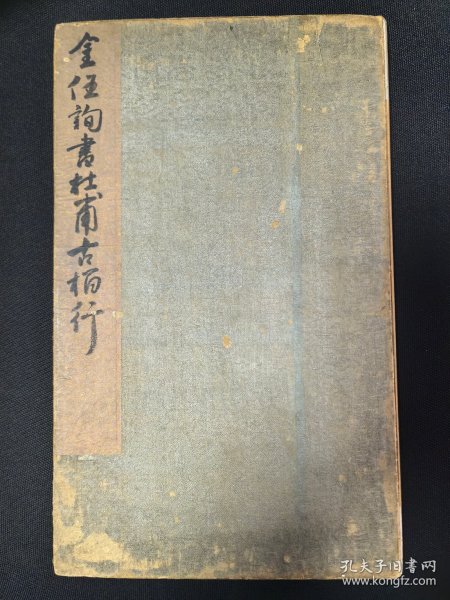 金任詢書杜甫古柏行
孔夫子旧书网
www.kongfz.com